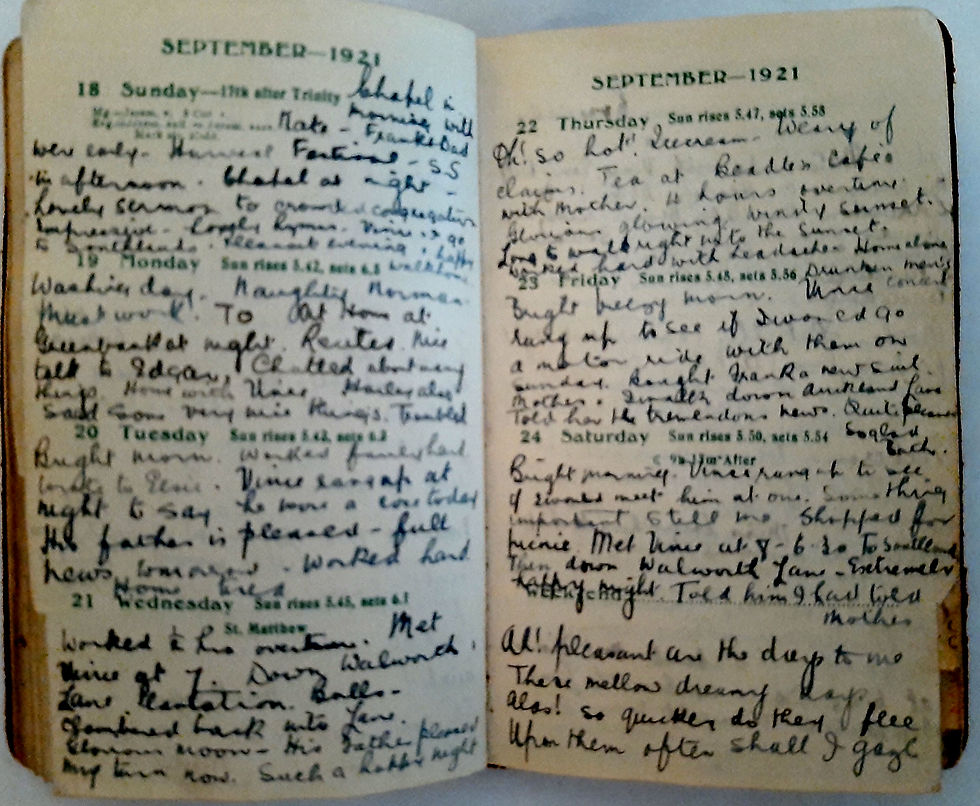 SEPTEMBER—1921
18 Sunday—17th after Trinity Chapel in
morning with
Kate - Frank & Dad
were early. Harvest Festival - SS
in afternoon. Chapel at night -
Lovely sermon to crowded congregation
Impressive - Lovely hymns. Vince & I go
to Southlands. Pleasant evening, happy
walk home
19 Monday Sun rises 5.42, sets 6.5
Washing day. Naughty Norman
Must work! To At Home at
Greenbank at night. Recites. Nice
talk to Edgar, Chatted about many
things. Home with Vince Harley also
Said some very nice things. Troubled
20 Tuesday Sun rises 5.42, sets 6.2
Bright morn. Worked fairly hard
Wrote to Elsie. Vince rang up at
night to say he wore a coat today
His father is pleased - full
news tomorrow - Worked hard
Home tired
21 Wednesday Sun rises 5.45, sets 6.1
St. Matthew
Worked 2 hrs overtime. Met
Vince at 7. Down Walworth
Lane. Plantation. Bulls -
Clambered back into Lane.
Glorious moon - His Father pleased
My turn now. Such a happy night
SEPTEMBER—1921
22 Thursday Sun rises 5.47, sets 5.58
Oh! so hot! Icecream. Weary of
claims. Tea at Beadles Café
with Mother. 4 hours overtime.
Glorious glowing windy sunset.
Long to walk right into the Sunset.
Worked hard with headache. Home alone
Drunken men's
concert
23 Friday Sun rises 5.48, sets 5.56
Bright breezy morn. Vince
rang up to see if I would go
a motor ride with them on
Sunday. Bought Frank a new suit.
Mother & I walk down Auckland
Told her the tremendous news. Quite pleased
So glad
Bath.
24 Saturday Sun rises 5.50, sets 5.54
Bright morning. Vince rang up to see
if I would meet him at one. Something
important to tell me. Shopped for
picnic. Met Vince at 6.30 To
Then down Walworth Lane - Extremely
happy night. Told him I had told
Mother
Ah! pleasant are the days to me
These mellow dreamy days.
Alas! so quickly do they flee
Upon them often shall I gaze